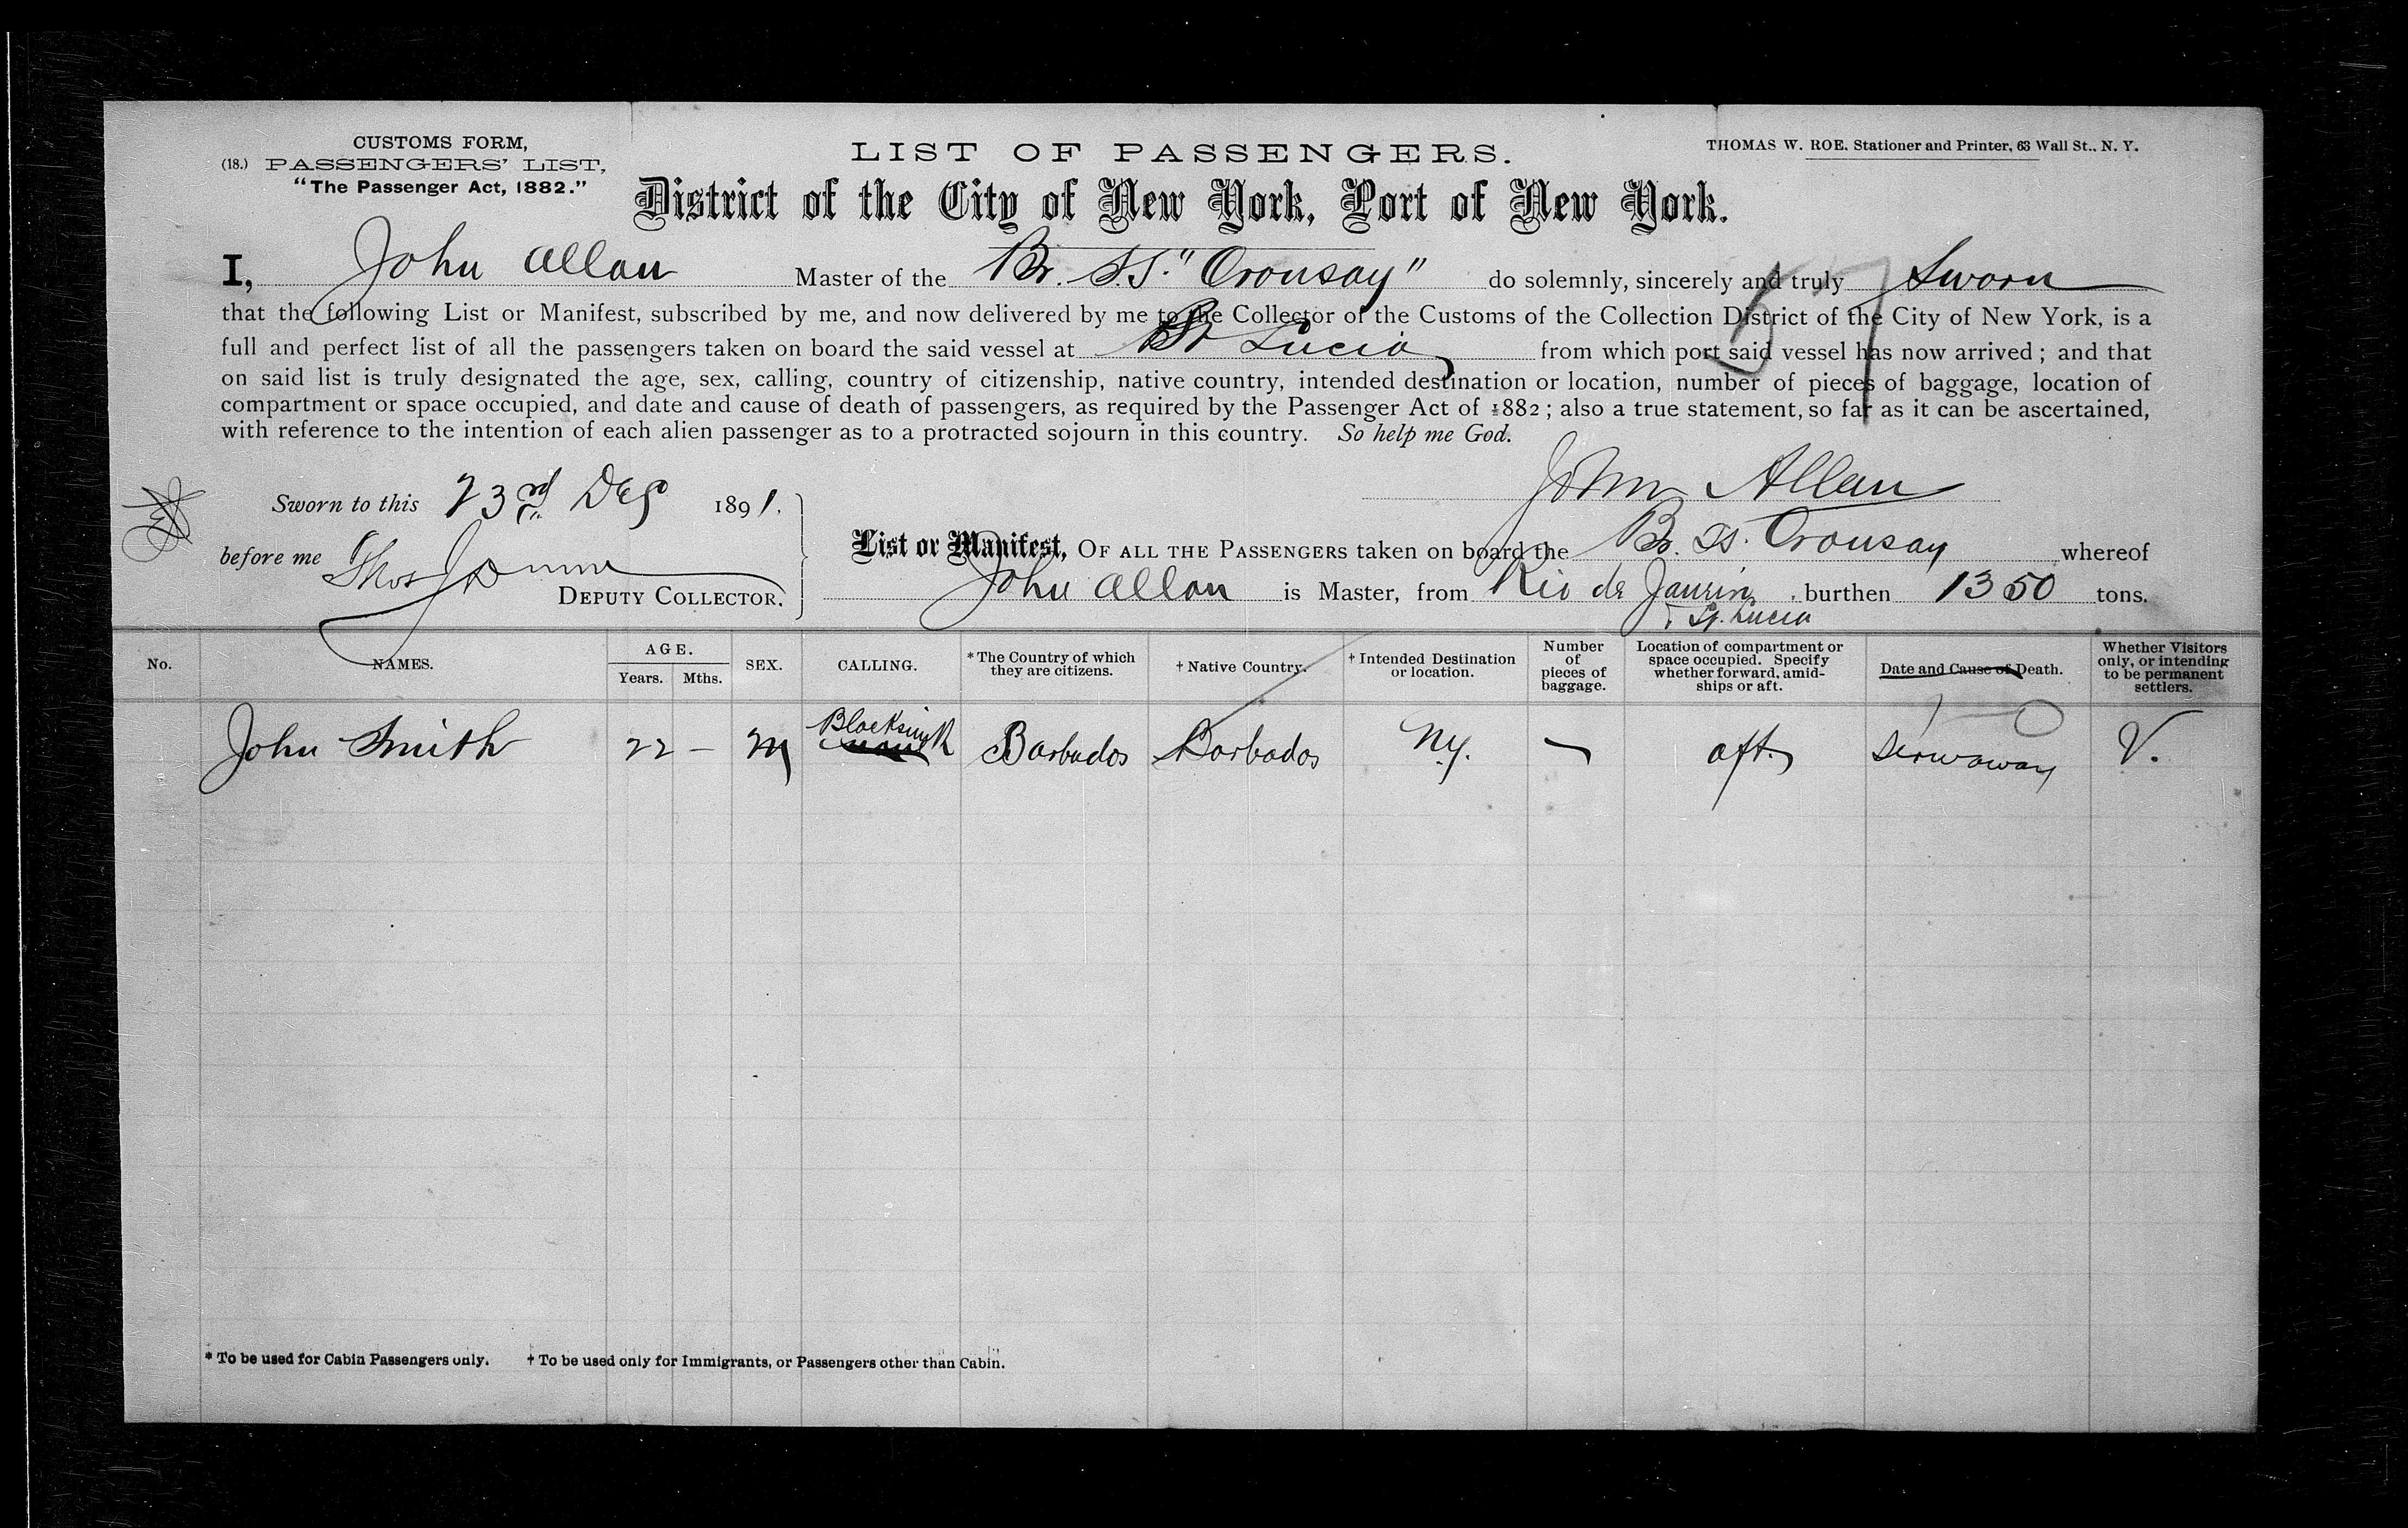 CUSTOMS FORM,
(18.) PASSENGERS' LIST,
"The Passenger Act, 1882."
LIST OF PASSENGERS.
THOMAS W. ROE. Stationer and Printer, 63 Wall St., N. Y.
District of the City of New York, Port of New York.
I, John Allan Master of the Br. SS. "Oronsay" do solemnly, sincerely and truly Sworn
that the following List or Manifest, subscribed by me, and now delivered by me to the Collector of the Customs of the Collection District of the City of New York, is a
full and perfect list of all the passengers taken on board the said vessel at St Lucia from which port said vessel has now arrived; and that
on said list is truly designated the age, sex, calling, country of citizenship, native country, intended destination or location, number of pieces of baggage, location of
compartment or space occupied, and date and cause of death of passengers, as required by the Passenger Act of 1882; also a true statement, so far as it can be ascertained,
with reference to the intention of each alien passenger as to a protracted sojourn in this country. So help me God.
57
John Allan
Sworn to this 23rd Dec 1891.
before me Thos
DEPUTY COLLECTOR.
List or Manifest, OF ALL THE PASSENGERS taken on board the Br. SS. Oronsay whereof
John Allan is Master, from Rio de Janeiro, burthen 1350 tons.
St. Lucia
No. NAMES. AGE. Years. Mths. SEX. CALLING. *The Country of which they are citizens. †Native Country. †Intended Destination or location. Number of pieces of baggage. Location of compartment or space occupied. Specify whether forward, amidships or aft. Date and Cause of Death. Whether Visitors only, or intending to be permanent settlers.
John Smith 22 — M Blacksmith Barbados Barbados N.Y. — aft. Stowaway V.
* To be used for Cabin Passengers only. † To be used only for Immigrants, or Passengers other than Cabin.